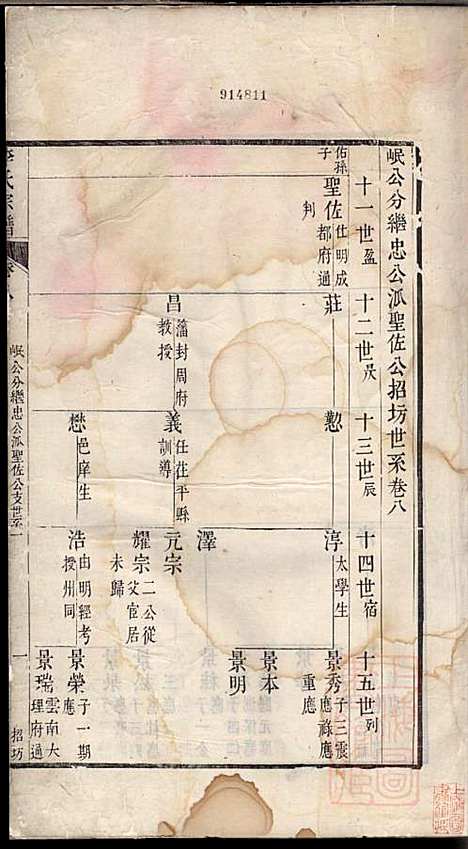 914811
岷公分繼忠公派聖佐公招坊世系卷八
十一世盈
十二世昃
十三世辰
十四世宿
十五世列
佑孫子
聖佐 仕明成都府通判
莊
懃
淳 太學生
景秀 子三震應祿應重應
景本
景明
澤
昌 藩封周府教授
義 任茌平縣訓導
元宗
耀宗 二公從父官居未歸
懋 邑庠生
浩 由明經考授州同
景榮 子一期應
景瑞 雲南大理府通
氏宗譜
岷公分繼忠公派聖佐公支世系
一
招坊